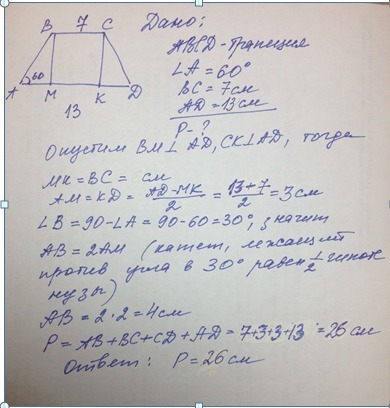 B 7 C
60
A M K D
13
Дано:
ABCD - трапеция
∠A = 60°
BC = 7см
AD = 13см
P - ?
Опустим BM⊥AD, CK⊥AD, тогда
MK = BC = см
AM = KD = AD-MK/2 = 13+7/2 = 3 см
∠B = 90-∠A = 90-60 = 30°, значит
AB = 2AM (катет, лежащий
против угла в 30° равен 1/2 гипоте
нузы)
AB = 2·2 = 4см
P = AB+BC+CD+AD = 7+3+3+13 = 26см
Ответ: P = 26см